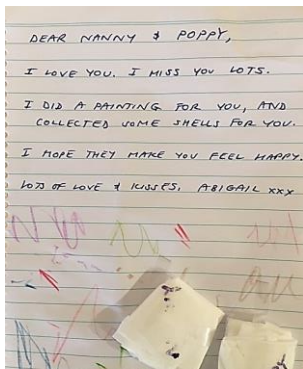 DEAR NANNY & POPPY,
I LOVE YOU. I MISS YOU LOTS.
I DID A PAINTING FOR YOU, AND
COLLECTED SOME SHELLS FOR YOU.
I HOPE THEY MAKE YOU FEEL HAPPY.
LOTS OF LOVE & KISSES, ABIGAIL xxx